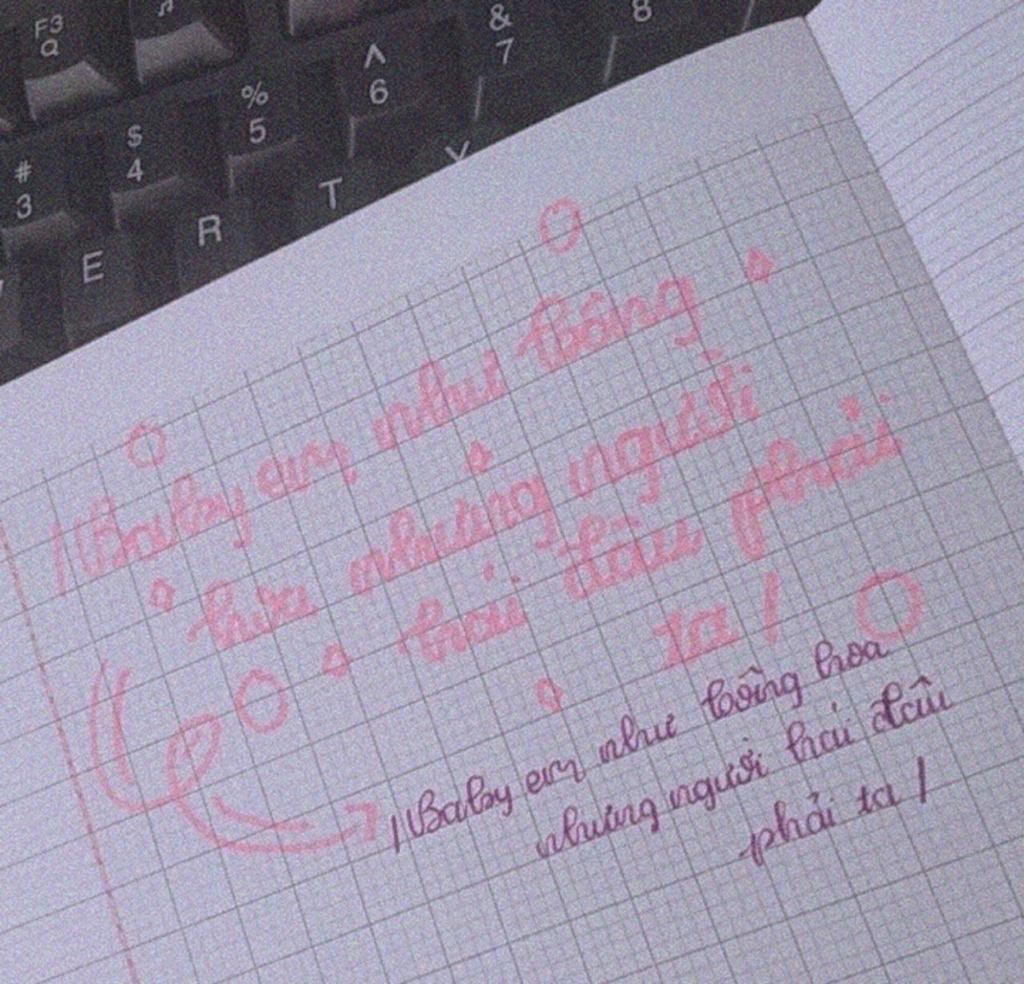 F3
Q
&
7
8
^
6
%
5
$
4
#
3
Y
T
R
E
/Baby em như bông
hoa nhưng người
hái đâu phải
ta /
/Baby em như bông hoa
nhưng người hái đâu
phải ta /